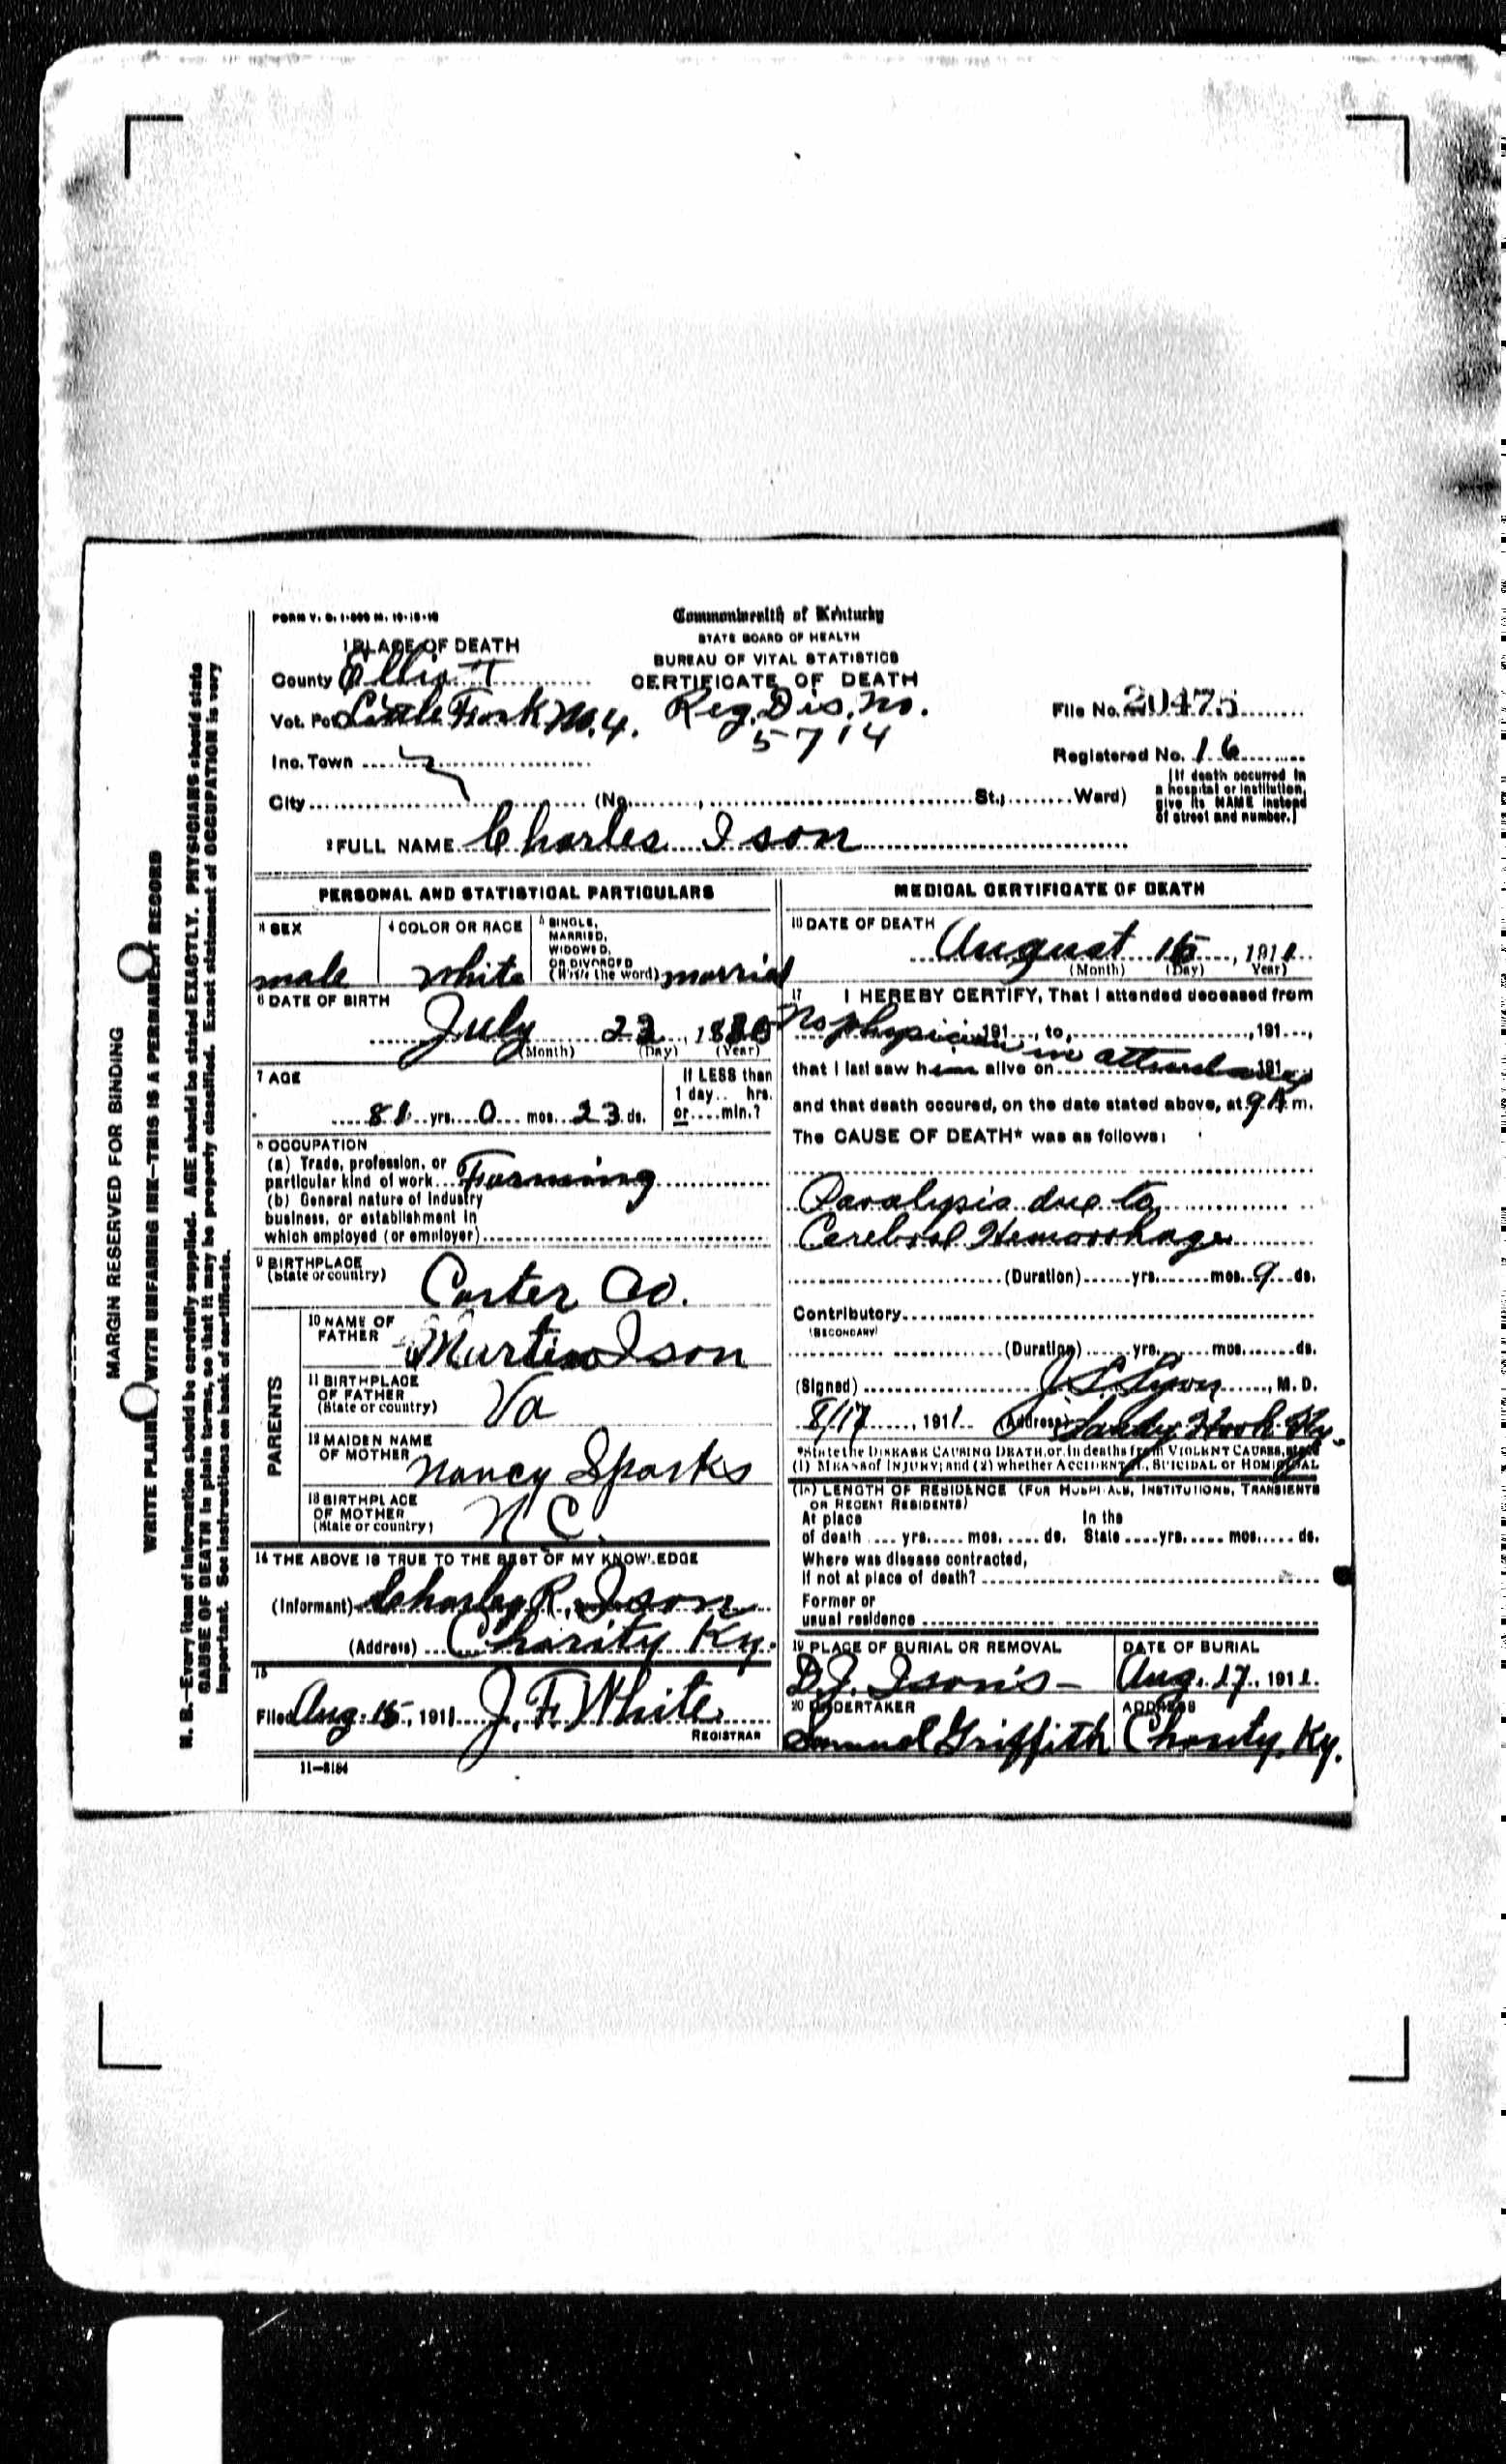 FORM V. S. 1-500 M. 10-18-10
Commonwealth of Kentucky
STATE BOARD OF HEALTH
BUREAU OF VITAL STATISTICS
CERTIFICATE OF DEATH
1 PLACE OF DEATH
County Elliott
Vot. Pct Little Fork No. 4. Reg. Dis. No.
5714
File No. 20475
Inc. Town
Registered No. 16
City (No. , St.; Ward)
[If death occurred in
a hospital or institution,
give its NAME instead
of street and number.]
2 FULL NAME Charles Ison
PERSONAL AND STATISTICAL PARTICULARS
3 SEX
male
4 COLOR OR RACE
White
5 SINGLE,
MARRIED,
WIDOWED,
OR DIVORCED
(Write the word) married
6 DATE OF BIRTH
July 23, 18
(Month) (Day) (Year)
7 AGE
81 yrs. 0 mos. 23 ds.
If LESS than
1 day.. hrs.
or....min.?
8 OCCUPATION
(a) Trade, profession, or
particular kind of work Farming
(b) General nature of industry
business, or establishment in
which employed (or employer)
9 BIRTHPLACE
(State or country) Carter Co.
PARENTS
10 NAME OF
FATHER Martin Ison
11 BIRTHPLACE
OF FATHER
(State or country) Va
12 MAIDEN NAME
OF MOTHER Nancy Sparks
13 BIRTHPLACE
OF MOTHER
(State or country) N C.
14 THE ABOVE IS TRUE TO THE BEST OF MY KNOWLEDGE
(Informant) Charley R. Ison
(Address) Charity Ky.
15
Filed Aug. 15, 1911 J. F. White
REGISTRAR
11-5184
MEDICAL CERTIFICATE OF DEATH
16 DATE OF DEATH
August 15, 1911
(Month) (Day) Year)
17 I HEREBY CERTIFY, That I attended deceased from
No physician 191 , to, , 191 ,
in attendance
that I last saw him alive on 191
and that death occured, on the date stated above, at 9 A m.
The CAUSE OF DEATH* was as follows:
Paralysis due to
Cerebral Hemorrhage
(Duration) yrs. mos. 9 ds.
Contributory
(SECONDARY)
(Duration) yrs. mos. ds.
(Signed) J. , M. D.
8/17, 1911 (Address) Sandy Hook Ky.
*State the DISEASE CAUSING DEATH, or, in deaths from VIOLENT CAUSES, state
(1) MEANS of INJURY; and (2) whether ACCIDENTAL, SUICIDAL or HOMICIDAL
(18) LENGTH OF RESIDENCE (FOR HOSPITALS, INSTITUTIONS, TRANSIENTS
OR RECENT RESIDENTS)
At place In the
of death yrs. mos. ds. State yrs. mos. ds.
Where was disease contracted,
If not at place of death?
Former or
usual residence
19 PLACE OF BURIAL OR REMOVAL
D. J. Ison's
DATE OF BURIAL
Aug. 17, 1911.
20 UNDERTAKER
Samuel Griffith
ADDRESS
Charity, Ky.
MARGIN RESERVED FOR BINDING
WRITE PLAINLY, WITH UNFADING INK—THIS IS A PERMANENT RECORD
N. B.—Every item of information should be carefully supplied. AGE should be stated EXACTLY. PHYSICIANS should state
CAUSE OF DEATH in plain terms, so that it may be properly classified. Exact statement of OCCUPATION is very
important. See instructions on back of certificate.